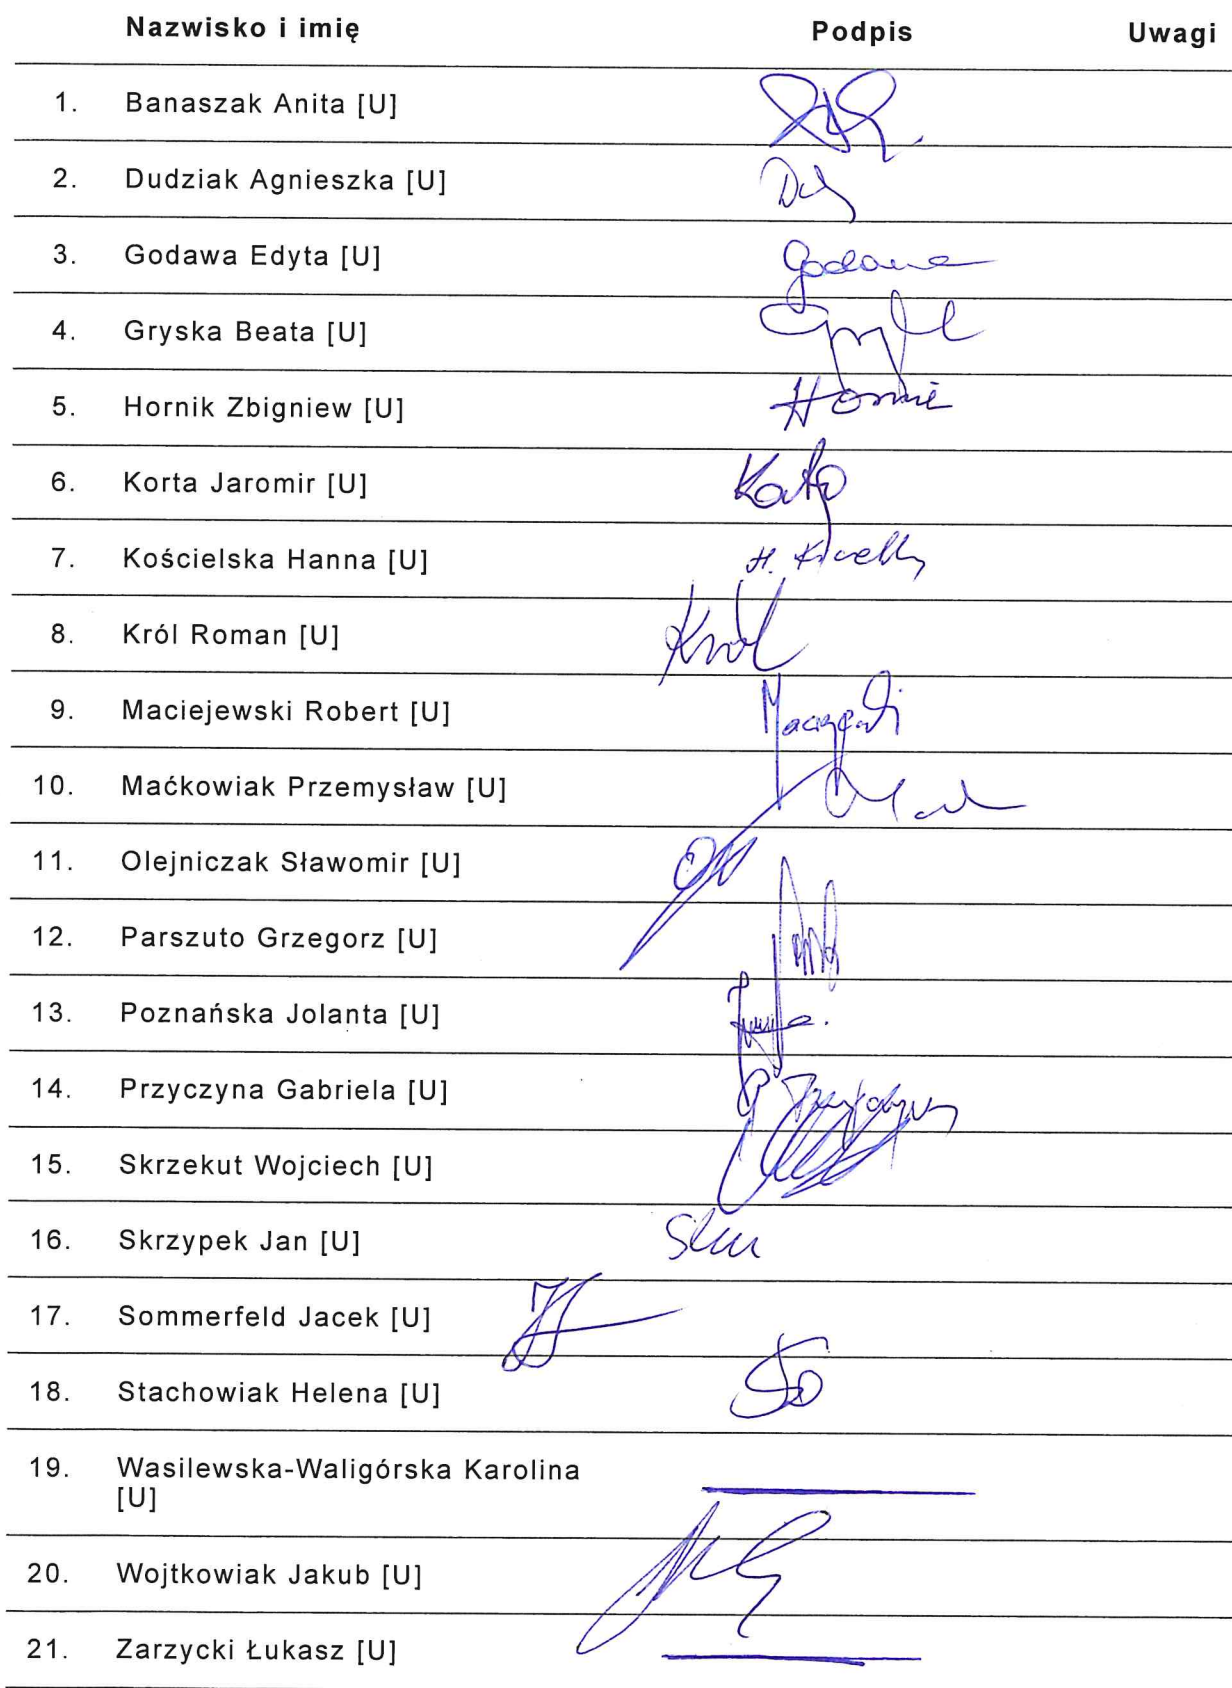 Nazwisko i imię Podpis Uwagi
1. Banaszak Anita [U]
2. Dudziak Agnieszka [U]
3. Godawa Edyta [U] Godawa
4. Gryska Beata [U]
5. Hornik Zbigniew [U] Hornik
6. Korta Jaromir [U] Korta
7. Kościelska Hanna [U] H.
8. Król Roman [U] Król
9. Maciejewski Robert [U] Maciejewski
10. Maćkowiak Przemysław [U]
11. Olejniczak Sławomir [U]
12. Parszuto Grzegorz [U]
13. Poznańska Jolanta [U]
14. Przyczyna Gabriela [U] G Przyczyna
15. Skrzekut Wojciech [U]
16. Skrzypek Jan [U]
17. Sommerfeld Jacek [U]
18. Stachowiak Helena [U]
19. Wasilewska-Waligórska Karolina
[U]
20. Wojtkowiak Jakub [U]
21. Zarzycki Łukasz [U]